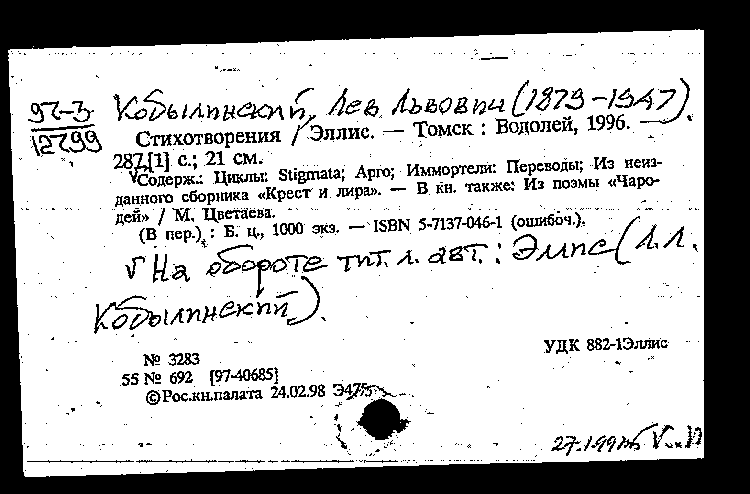 97-3
12799
Кобылинский, Лев Львович (1879-1947).
Стихотворения / Эллис. — Томск : Водолей, 1996. —
287,[1] с.; 21 см.
Содерж.: Циклы: Stigmata; Арго; Иммортели: Переводы; Из неиз-
данного сборника «Крест и лира». — В кн. также: Из поэмы «Чаро-
дей» / М. Цветаева.
(В пер.) : Б. ц., 1000 экз. — ISBN 5-7137-046-1 (ошибоч.).
√ На обороте тит. л. авт.: Эллис (Л.Л.
Кобылинский).
УДК 882-1Эллис
№ 3283
55 № 692 [97-40685]
©Рос.кн.палата 24.02.98 Э475